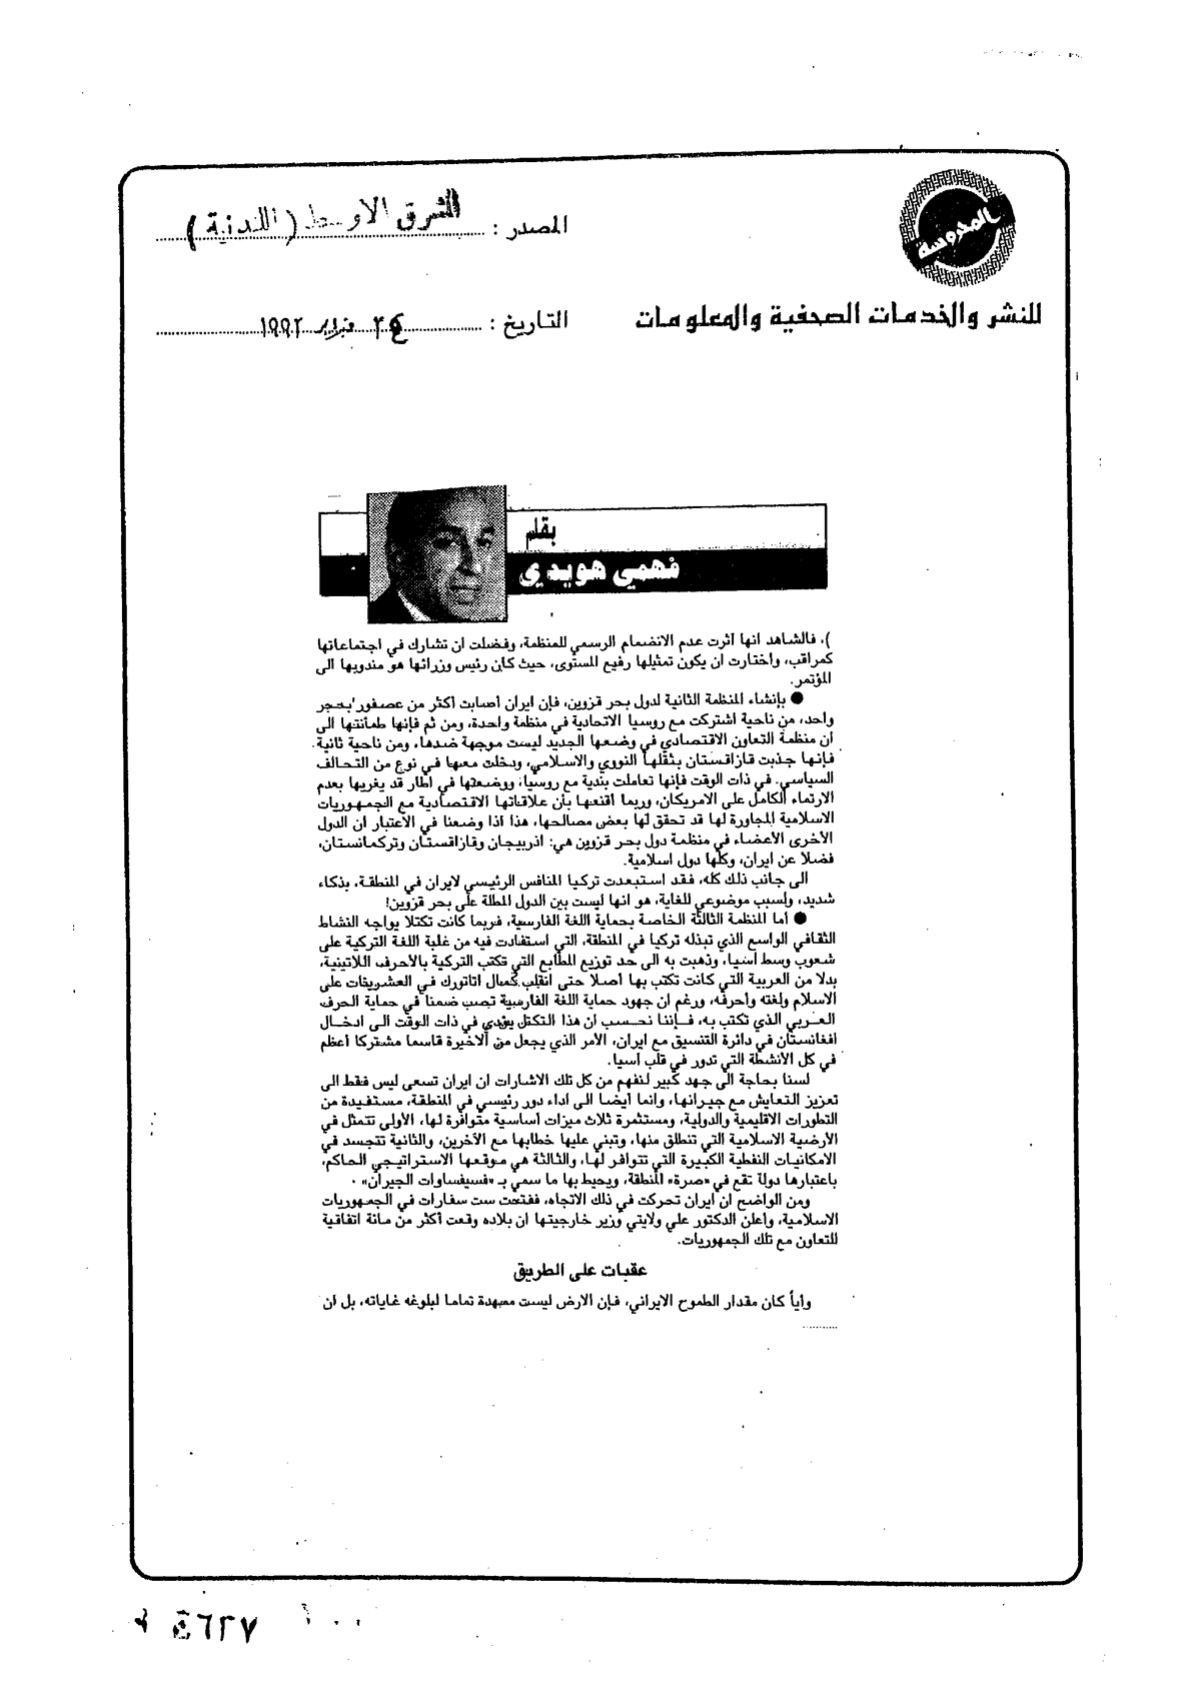 المحروسة
المصدر : الشرق الاوسط (اللندنية)
للنشر والخدمات الصحفية والمعلومات
التاريخ : ٢٤ فبراير ١٩٩٢
بقلم
فهمي هويدي
)، فالشاهد انها آثرت عدم الانضمام الرسمي للمنظمة، وفضلت ان تشارك في اجتماعاتها
كمراقب، واختارت ان يكون تمثيلها رفيع المستوى، حيث كان رئيس وزرائها هو مندوبها الى
المؤتمر.
● بإنشاء المنظمة الثانية لدول بحر قزوين، فإن ايران أصابت أكثر من عصفور بحجر
واحد، من ناحية اشتركت مع روسيا الاتحادية في منظمة واحدة، ومن ثم فإنها طمأنتها الى
أن منظمة التعاون الاقتصادي في وضعها الجديد ليست موجهة ضدها، ومن ناحية ثانية
فإنها جذبت قازاقستان بثقلها النووي والاسلامي، ودخلت معها في نوع من التحالف
السياسي. في ذات الوقت فإنها تعاملت بندية مع روسيا، ووضعتها في اطار قد يغريها بعدم
الارتماء الكامل على الامريكان، وربما اقنعها بأن علاقاتها الاقتصادية مع الجمهوريات
الاسلامية المجاورة لها قد تحقق لها بعض مصالحها، هذا اذا وضعنا في الاعتبار ان الدول
الأخرى الأعضاء في منظمة دول بحر قزوين هي: اذربيجان وقازاقستان وتركمانستان،
فضلا عن ايران، وكلها دول اسلامية.
الى جانب ذلك كله، فقد استبعدت تركيا المنافس الرئيسي لايران في المنطقة، بذكاء
شديد، ولسبب موضوعي للغاية، هو انها ليست بين الدول المطلة على بحر قزوين!
● أما المنظمة الثالثة الخاصة بحماية اللغة الفارسية، فربما كانت تكتلا يواجه النشاط
الثقافي الواسع الذي تبذله تركيا في المنطقة، التي استفادت فيه من غلبة اللغة التركية على
شعوب وسط آسيا، وذهبت به الى حد توزيع المطابع التي تكتب التركية بالأحرف اللاتينية،
بدلا من العربية التي كانت تكتب بها أصلا حتى انقلب كمال اتاتورك في العشرينات على
الاسلام ولغته وأحرفه، ورغم ان جهود حماية اللغة الفارسية تصب ضمنا في حماية الحرف
العربي الذي تكتب به، فإننا نحسب أن هذا التكتل يؤدي في ذات الوقت الى ادخال
افغانستان في دائرة التنسيق مع ايران، الأمر الذي يجعل من الأخيرة قاسما مشتركا أعظم
في كل الأنشطة التي تدور في قلب آسيا.
لسنا بحاجة الى جهد كبير لنفهم من كل تلك الاشارات ان ايران تسعى ليس فقط الى
تعزيز التعايش مع جيرانها، وانما أيضا الى اداء دور رئيسي في المنطقة، مستفيدة من
التطورات الاقليمية والدولية، ومستثمرة ثلاث ميزات أساسية متوافرة لها، الأولى تتمثل في
الأرضية الاسلامية التي تنطلق منها، وتبني عليها خطابها مع الآخرين، والثانية تتجسد في
الامكانيات النفطية الكبيرة التي تتوافر لها، والثالثة هي موقعها الاستراتيجي الحاكم،
باعتبارها دولة تقع في «صرة» المنطقة، ويحيط بها ما سمي بـ «فسيفساوات الجيران» .
ومن الواضح ان ايران تحركت في ذلك الاتجاه، ففتحت ست سفارات في الجمهوريات
الاسلامية، وأعلن الدكتور علي ولايتي وزير خارجيتها ان بلاده وقعت أكثر من مائة اتفاقية
للتعاون مع تلك الجمهوريات.
عقبات على الطريق
وأياً كان مقدار الطموح الايراني، فإن الارض ليست ممهدة تماما لبلوغه غاياته، بل ان